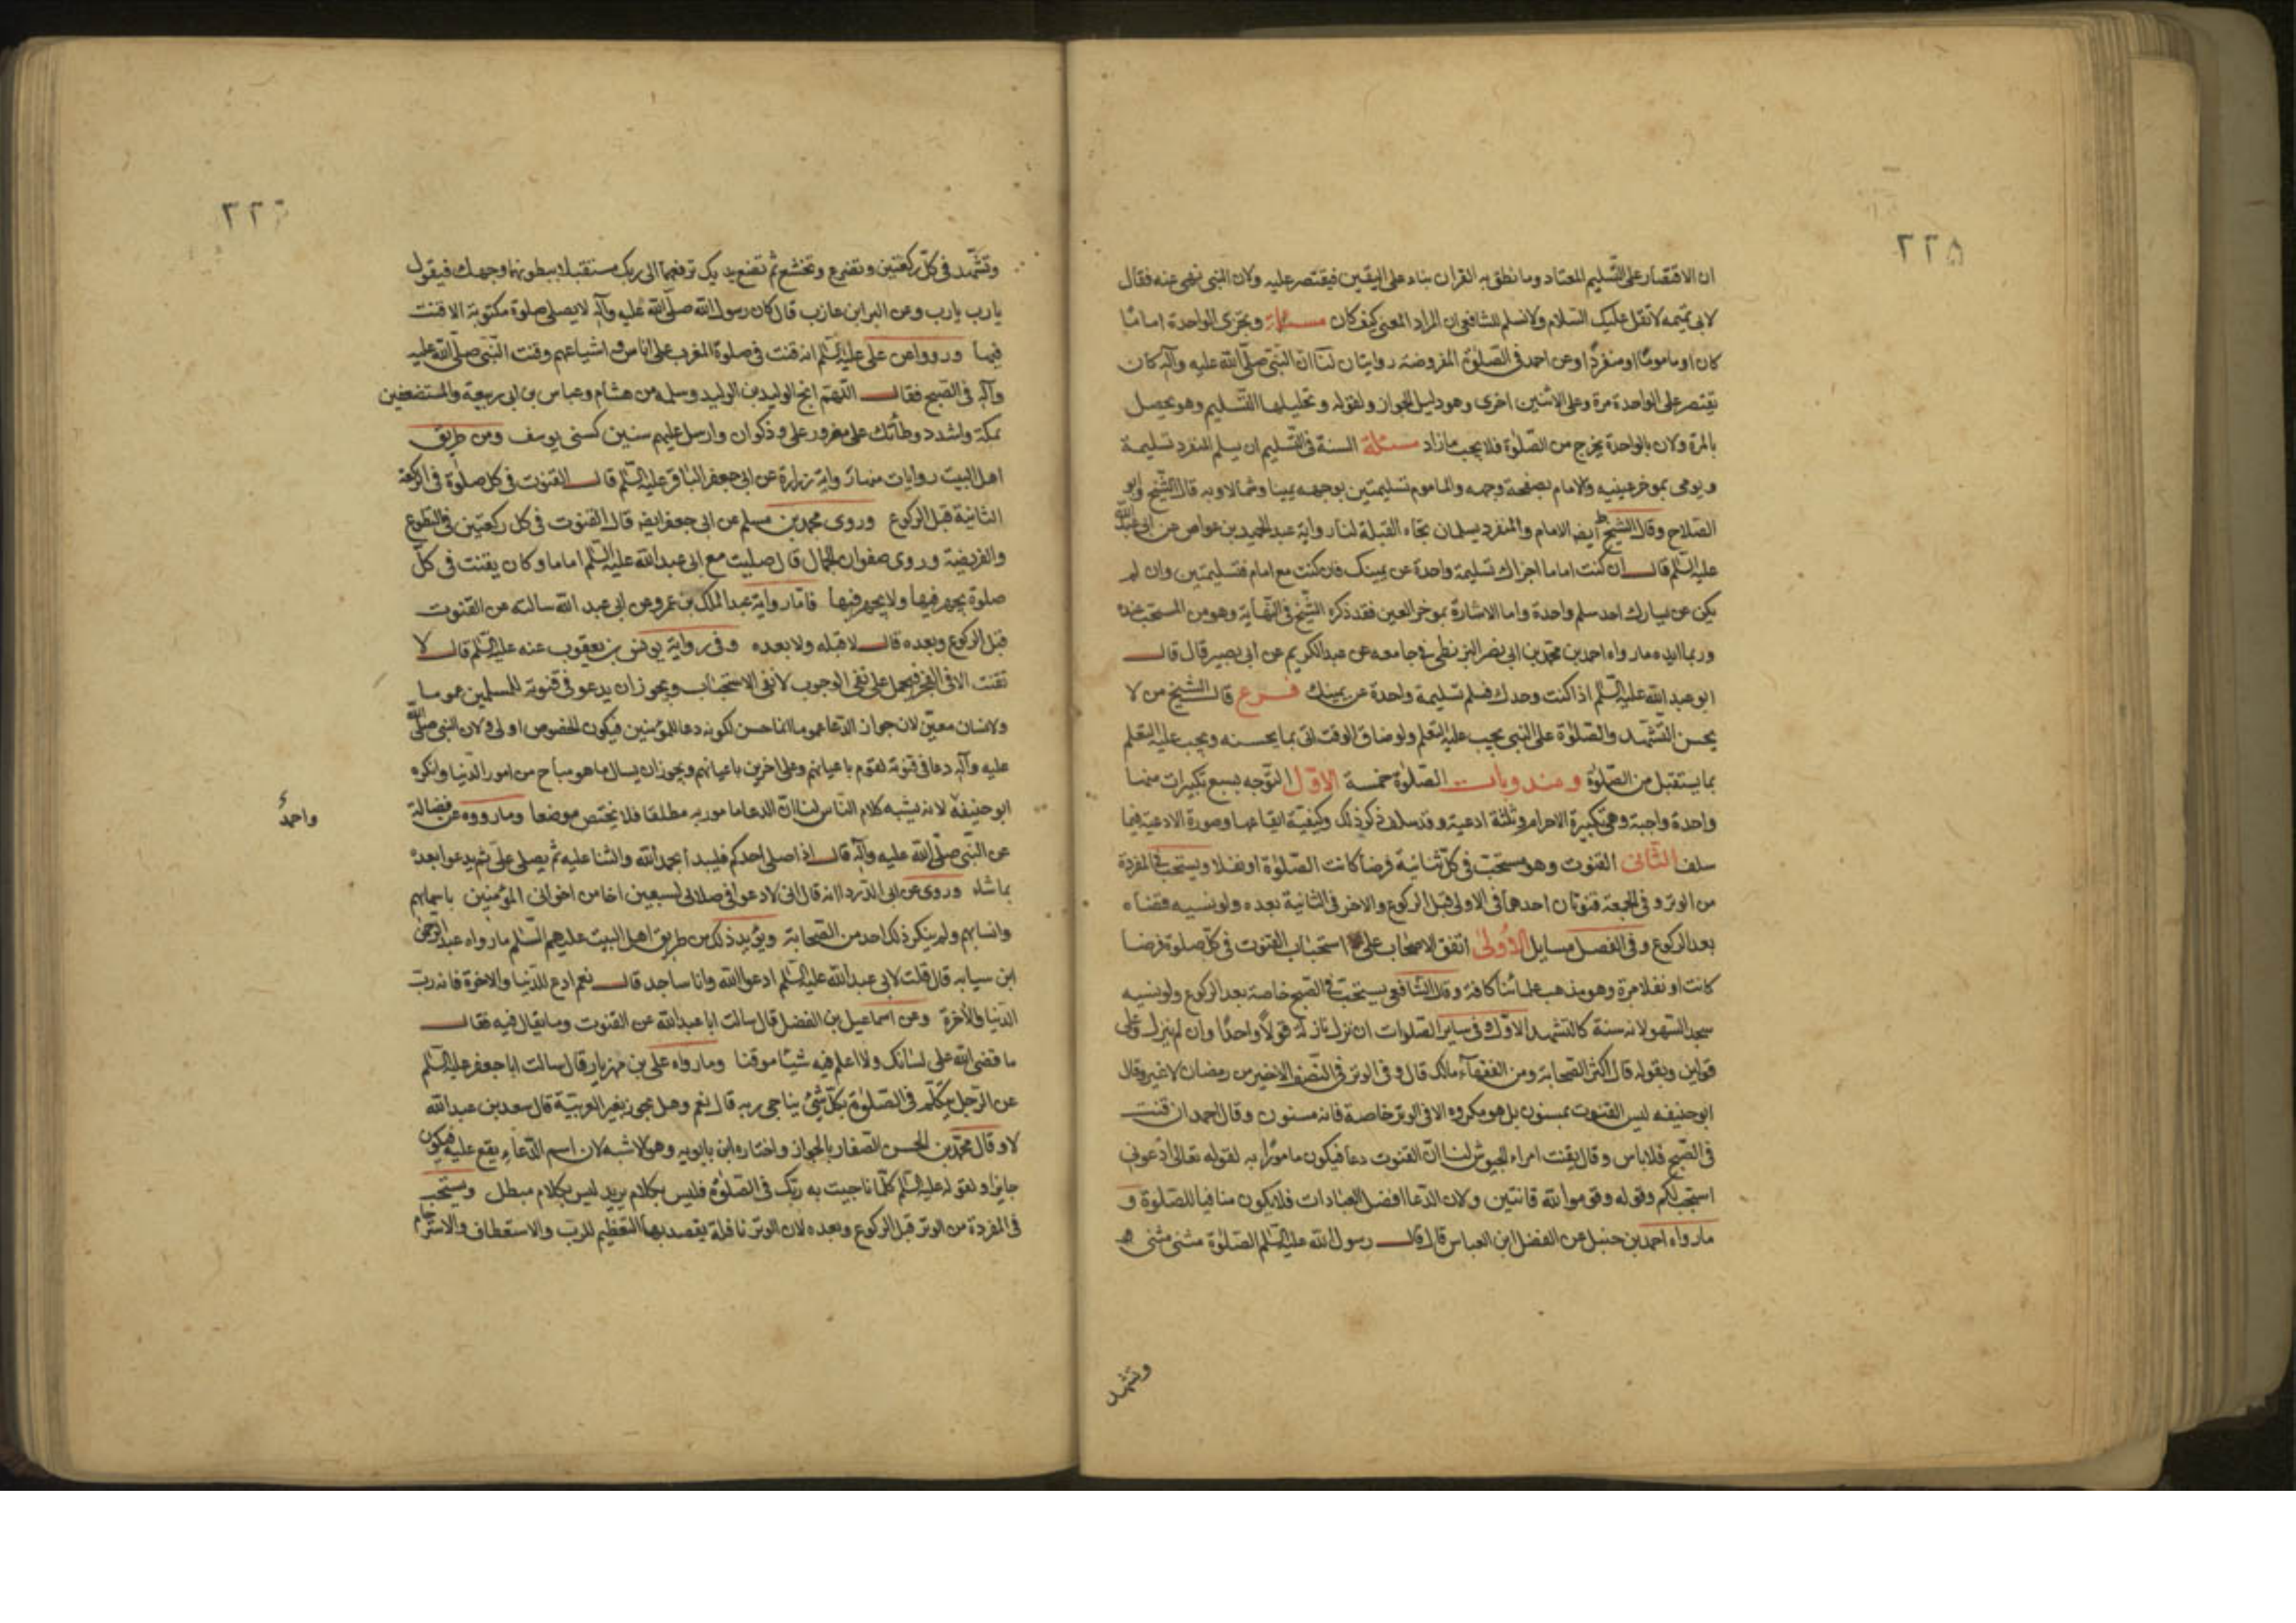 ٢٢٥
ان الاقتصار على التسليم المعتاد وما نطق به القران بناء على اليقين فيقتصر عليه ولان النبى نهى عنه فقال
لابى تميمه لا تقل عليك السلام ولا نسلم للشافعى ان المراد المعنى كيف كان مسئلة ويجزى الواحدة اماما
كان او ماموما او منفردا وعن احمد فى الصلوة المفروضة روايتان لنا ان النبى صلى الله عليه وآله كان
يقتصر على الواحدة مرة وعلى الاثنين اخرى وهو دليل الجواز ولقوله وتحليلها التسليم وهو يحصل
بالمرة ولان بالواحدة يخرج من الصلوة فلا يجب مازاد مسئلة السنة فى التسليم ان يسلم المنفرد تسليمة
ويومى بموخر عينيه والامام بصفحة وجهه والماموم تسليمتين بوجهه يمينا وشمالا وبه قال الشيخ وابو
الصلاح وقال الشيخ ايضا الامام والمنفرد يسلمان تجاه القبلة لنا رواية عبد الحميد بن عواض عن ابى عبد الله
عليه السلم قال ان كنت اماما اجزاك تسليمة واحدة عن يمينك فان كنت مع امام فتسليمتين وان لم
يكن عن يسارك احد سلم واحدة واما الاشارة بموخر العين فقد ذكره الشيخ فى النهاية وهو من المستحب عنده
وربما ايده مارواه احمد بن محمد بن ابى نصر البزنطى فى جامعه عن عبد الكريم عن ابى بصير قال قال
ابو عبد الله عليه السلم اذا كنت وحدك فسلم تسليمة واحدة عن يمينك فرع قال الشيخ من لا
يحسن التشهد والصلوة على النبى يجب عليه التعلم ولو ضاق الوقت اتى بما يحسنه ويجب عليه التعلم
بما يستقبل من الصلوة ومندوبات الصلوة خمسة الاول التوجه بسبع تكبيرات منها
واحدة واجبة وهى تكبيرة الاحرام وثلثة ادعية وقد سلف ذكر ذلك وكيفية ايقاعها وصورة الادعية فيما
سلف الثانى القنوت وهو مستحب فى كل ثنائية فرضا كانت الصلوة او نفلا ويستحب فى المفردة
من الوتر وفى الجمعة قنوتان احدهما فى الاولى قبل الركوع والاخر فى الثانية بعده ولو نسيه قضاه
بعد الركوع وفى الفصل مسايل الاولى اتفق الاصحاب على استحباب القنوت فى كل صلوة فرضا
كانت او نفلا مرة وهو مذهب علمائنا كافة وقال الشافعى يستحب فى الصبح خاصة بعد الركوع ولو نسيه
سجد للسهو لانه سنة كالتشهد الاول وفى ساير الصلوات ان نزل نازلة قولا واحدا وان لم ينزل فعلى
قولين وبقوله قال اكثر الصحابة ومن الفقهآء مالك قال وفى الوتر فى النصف الاخير من رمضان لا غير وقال
ابو حنيفه ليس القنوت بمسنون بل هو مكروه الا فى الوتر خاصة فانه مسنون وقال احمد ان قنت
فى الصبح فلا باس وقال يقنت امراء الجيوش لنا ان القنوت دعا فيكون مامورا به لقوله تعالى ادعونى
استجب لكم وقوله وقوموا لله قانتين ولان الدعا افضل العبادات فلا يكون منافيا للصلوة و
مارواه احمد بن حنبل عن الفضل ابن العباس قال قال رسول الله عليه السلم الصلوة مثنى مثنى
وتشهد
٢٢٦
وتشهد فى كل ركعتين وتضرع وتخشع ثم تضع يديك ترفعهما الى ربك مستقبلا ببطونهما وجهك فيقول
يارب يارب وعن البرا بن عازب قال كان رسول الله صلى الله عليه وآله لا يصلى صلوة مكتوبة الا قنت
فيها ورووا عن على عليه السلم انه قنت فى صلوة المغرب على اناس واشياعهم وقنت النبى صلى الله عليه
وآله فى الصبح فقال اللهم انج الوليد بن الوليد وسلمه بن هشام وعباس بن ابى ربيعة والمستضعفين
بمكة واشدد وطأتك على مضر ورعل وذكوان وارسل عليهم سنين كسنى يوسف ومن طريق
اهل البيت روايات منها رواية زرارة عن ابى جعفر الباقر عليه السلم قال القنوت فى كل صلوة فى الركعة
الثانية قبل الركوع وروى محمد بن مسلم عن ابى جعفر ايضا قال القنوت فى كل ركعتين فى التطوع
والفريضة وروى صفوان الجمال قال صليت مع ابى عبد الله عليه السلم اماما وكان يقنت فى كل
صلوة يجهر فيها ولا يجهر فيها فاما رواية عبد الملك بن عمرو عن ابى عبد الله سالته عن القنوت
قبل الركوع وبعده قال لا قبله ولا بعده وفى رواية يونس بن يعقوب عنه عليه السلم قال لا
تقنت الا فى الفجر فيحمل على نفى الوجوب لا نفى الاستحباب ويجوز ان يدعو فى قنوته للمسلمين عموما
ولانسان معين لان جواز الدعا عموما انما حسن لكونه دعا للمؤمنين فيكون للخصوص اولى ولان النبى صلى الله
عليه وآله دعا فى قنوته لقوم باعيانهم وعلى اخرين باعيانهم ويجوز ان يسال ما هو مباح من امور الدنيا وانكره
ابو حنيفة لانه يشبه كلام الناس لنا ان الدعا مامور به مطلقا فلا يختص موضعا ومارووه عن فضالة
واحمد
عن النبى صلى الله عليه وآله قال اذا صلى احدكم فليبدأ بحمد الله والثنا عليه ثم يصلى على ثم يدعو بعده
بما شاء وروى عن ابى الدرداانه قال انى لادعو فى صلاتى لسبعين اخا من اخوانى المؤمنين باسمائهم
وانسابهم ولم ينكر ذلك احد من الصحابة ويؤيد ذلك من طريق اهل البيت عليهم السلم مارواه عبد الرحمن
ابن سيابه قال قلت لابى عبد الله عليه السلم ادعو الله وانا ساجد قال نعم ادع للدنيا والاخرة فانه رب
الدنيا والاخرة وعن اسماعيل بن الفضل قال سالت ابا عبد الله عن القنوت وما يقال فيه فقال
ما قضى الله على لسانك ولا اعلم فيه شيئا موقتا ومارواه على بن مهزيار قال سالت ابا جعفر عليه السلم
عن الرجل يتكلم فى الصلوة بكل شئ يناجى ربه قال نعم وهل يجوز بغير العربية قال سعد بن عبد الله
لا وقال محمد بن الحسن الصفار بالجواز واختاره ابن بابويه وهو الاشبه لان اسم الدعاء يقع عليه فيكون
جايزا ولقوله عليه السلم كلما ناجيت به ربك فى الصلوة فليس بكلام يريد ليس بكلام مبطل ويستحب
فى المفردة من الوتر قبل الركوع وبعده لان الوتر نافلة يقصد بها التعظيم للرب والاستعطاف والاسترحام